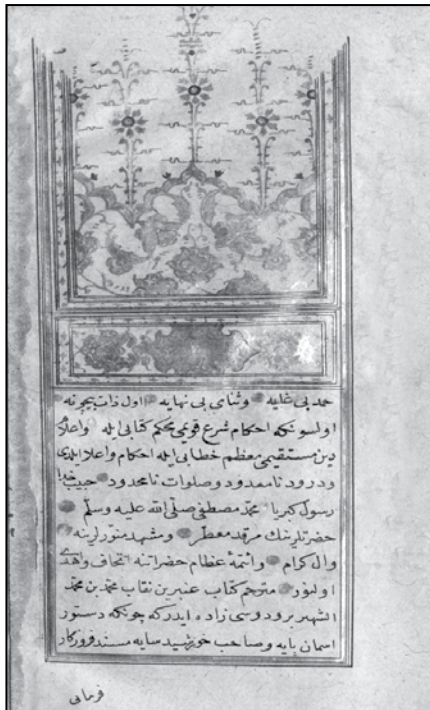 حمد بی غایه و ثنای بی نهایه اول ذات بیچونه
اولسونکه احکام شرع قویمی محکم کتابی ایله و اعلام
دین مستقیمی معظم خطابی ایله احکام و اعلا ایلدی
و درود نامعدود و صلوات نامحدود حبیب خدا
رسول کبریا محمد مصطفی صلّی الله علیه وسلّم
حضرتلرینك مرقد معطّر و مشهد منوّرلرینه
و آل کرام و ائمّهٔ عظام حضراتنه اتحاف و اهدی
اولنور مترجم کتاب عنبرین نقاب محمّد بن محمّد
الشهیر برودوسی زاده ایدرکه چونکه دستور
اسمان پایه و صاحب خورشید سایه مسند فروزکار
فرمانی